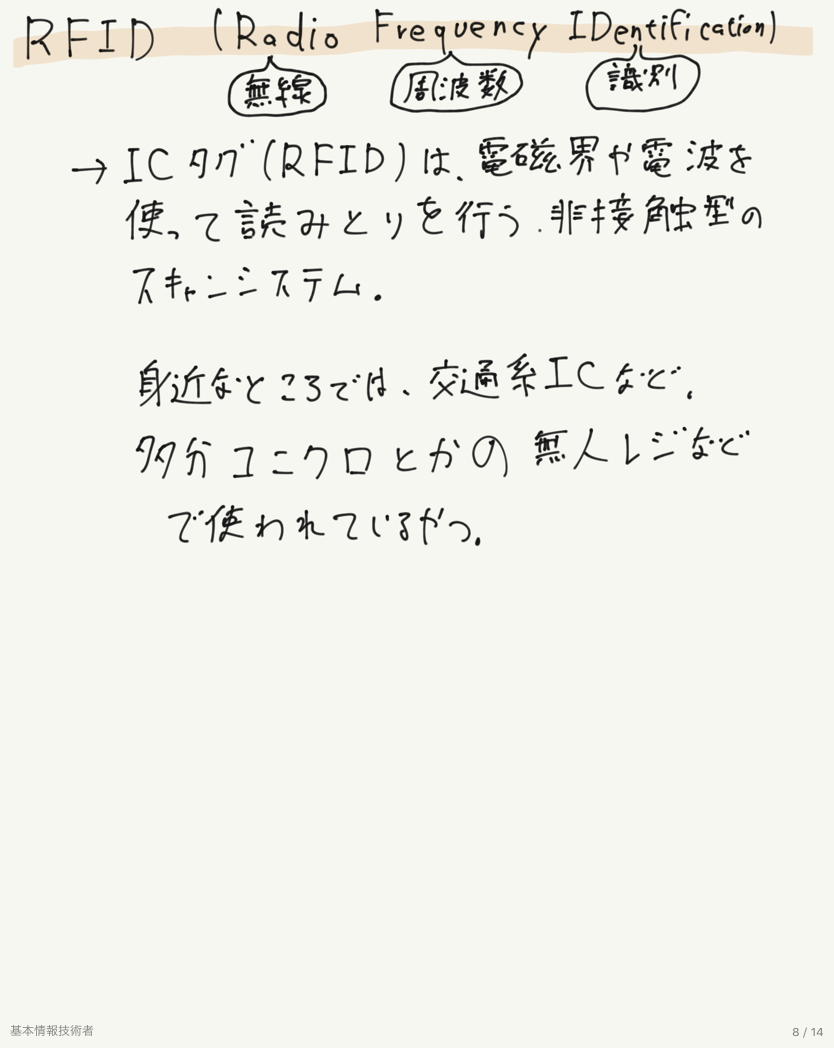 RFID (Radio Frequency IDentification)
無線 周波数 識別
→ ICタグ(RFID)は、電磁界や電波を
使って読みとりを行う、非接触型の
スキャンシステム。
身近なところでは、交通系ICなど。
多分ユニクロとかの無人レジなど
で使われているやつ。
基本情報技術者
8 / 14